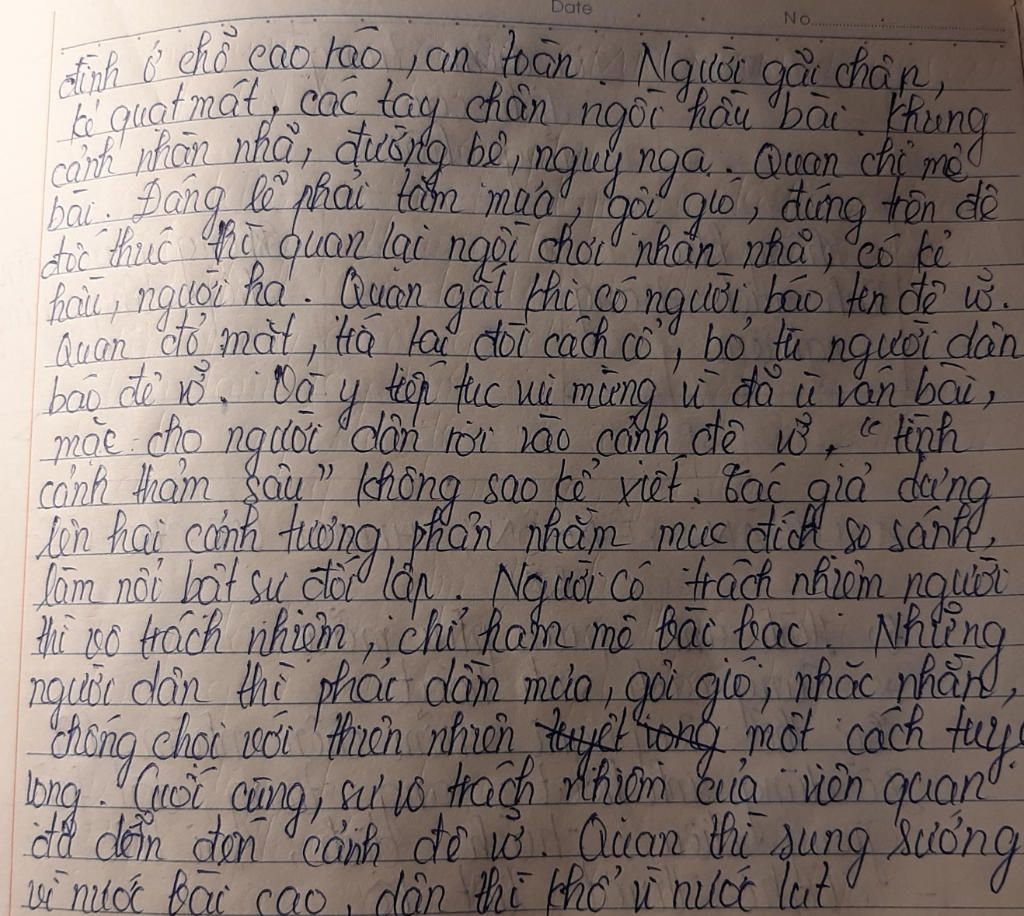 Date
No
đình ở chỗ cao ráo, an toàn. Người gãi chân,
kẻ quạt mát, các tay chân ngồi hầu bài. Khung
cảnh nhàn nhã, đường bệ, nguy nga. Quan chỉ mê
bài. Đáng lẽ phải tắm mưa, gội gió, đứng trên đê
đốc thúc thì quan lại ngồi chơi nhàn nhã, có kẻ
hầu, người hạ. Quan gắt khi có người báo tin đê vỡ.
Quan đỏ mặt, tía tai đòi cách cổ, bỏ tù người dân
báo đê vỡ. Và y tiếp tục vui mừng vì đã ù ván bài,
mặc cho người dân rơi vào cảnh đê vỡ, "tình
cảnh thảm sầu" không sao kể xiết. Tác giả dựng
lên hai cảnh tương phản nhằm mục đích so sánh,
làm nổi bật sự đối lập. Người có trách nhiệm người
thì vô trách nhiệm, chỉ ham mê bài bạc. Những
người dân thì phải dầm mưa, gội gió, nhắc nhằn,
chống chọi với thiên nhiên tuyệt vọng một cách tuy
vọng. Cuối cùng, sự vô trách nhiệm của viên quan
đã dẫn đến cảnh đê vỡ. Quan thì sung sướng
vì nước bài cao, dân thì khổ vì nước lụt